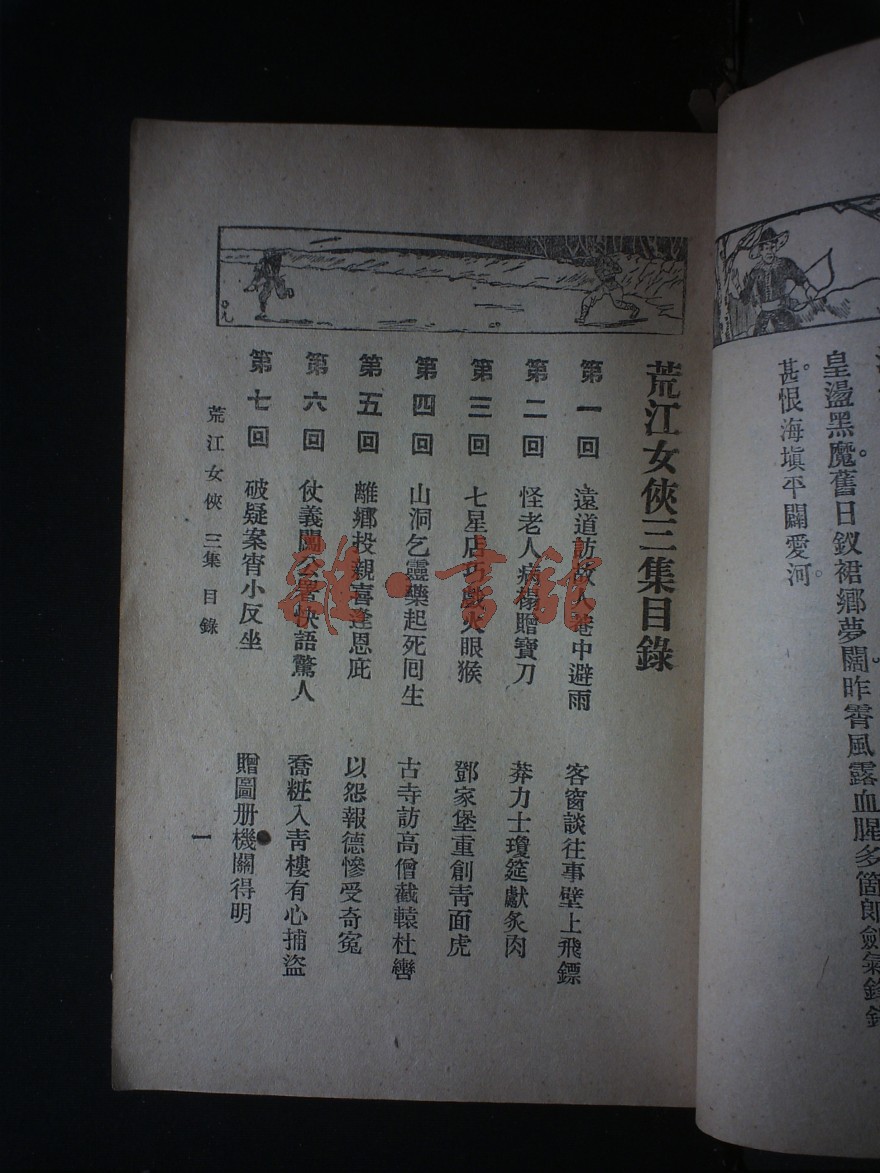 皇盪黑魔舊日釵裙鄉夢闊昨霄風露血腥多箇郎劍氣鋒
甚恨海塡平闢愛河
荒江女俠三集目錄
第一回 遠道訪故人菴中避雨 客窗談往事壁上飛鏢
第二回 怪老人病榻贈寶刀 莽力士瓊筵獻炙肉
第三回 七星店巧戲火眼猴 鄧家堡重創靑面虎
第四回 山洞乞靈藥起死囘生 古寺訪高僧截轅杜轡
第五回 離鄉投親喜逢恩庇 以怨報德慘受奇寃
第六回 仗義鬧公署快語驚人 喬粧入靑樓有心捕盜
第七回 破疑案宵小反坐 贈圖册機關得明
荒江女俠 三集 目錄
一